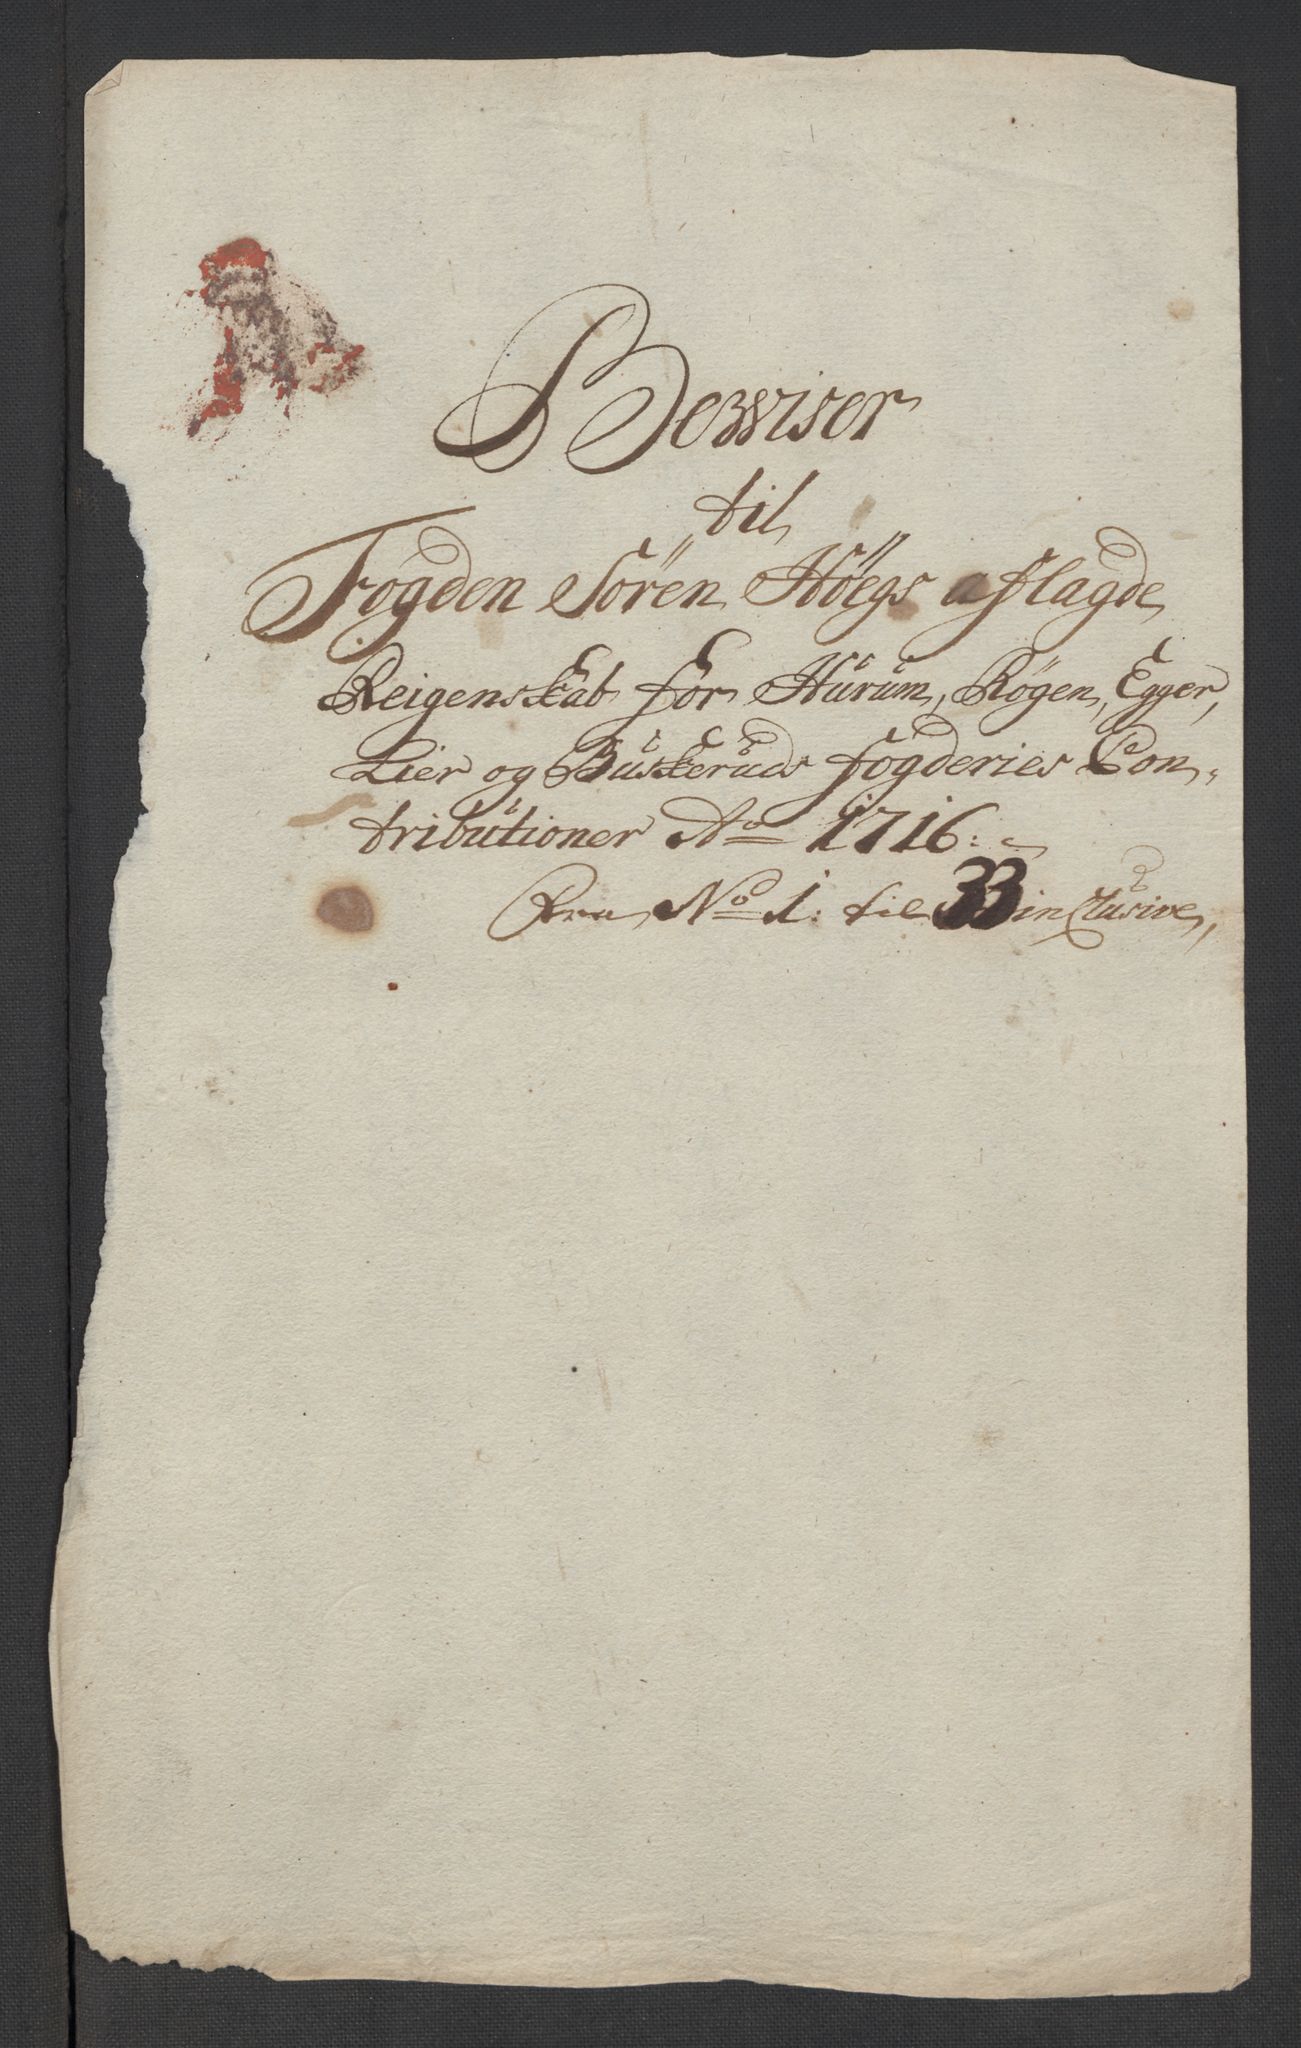 Bewiser
til
Fogden Sören Höegs aflagde
Reigenskab for Hurum, Rögen, Egger,
Lier og Buskeruds fogderies Con-
tributioner Ao 1716.
Fra No 1: til 33 inclusive,